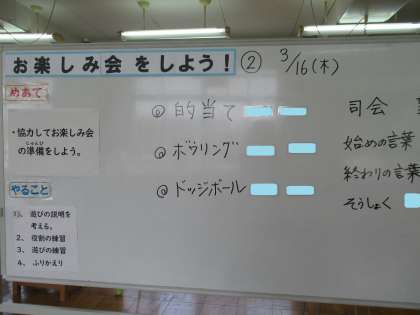 お楽しみ会をしよう！② 3/16(木)
めあて
・協力してお楽しみ会
の準備をしよう。
じゅんび
やること
1、遊びの説明を
考える。
2、役割の練習
3、遊びの練習
4、ふりかえり
◎的当て
◎ボウリング
◎ドッジボール
司会
始めの言葉
終わりの言葉
そうしょく